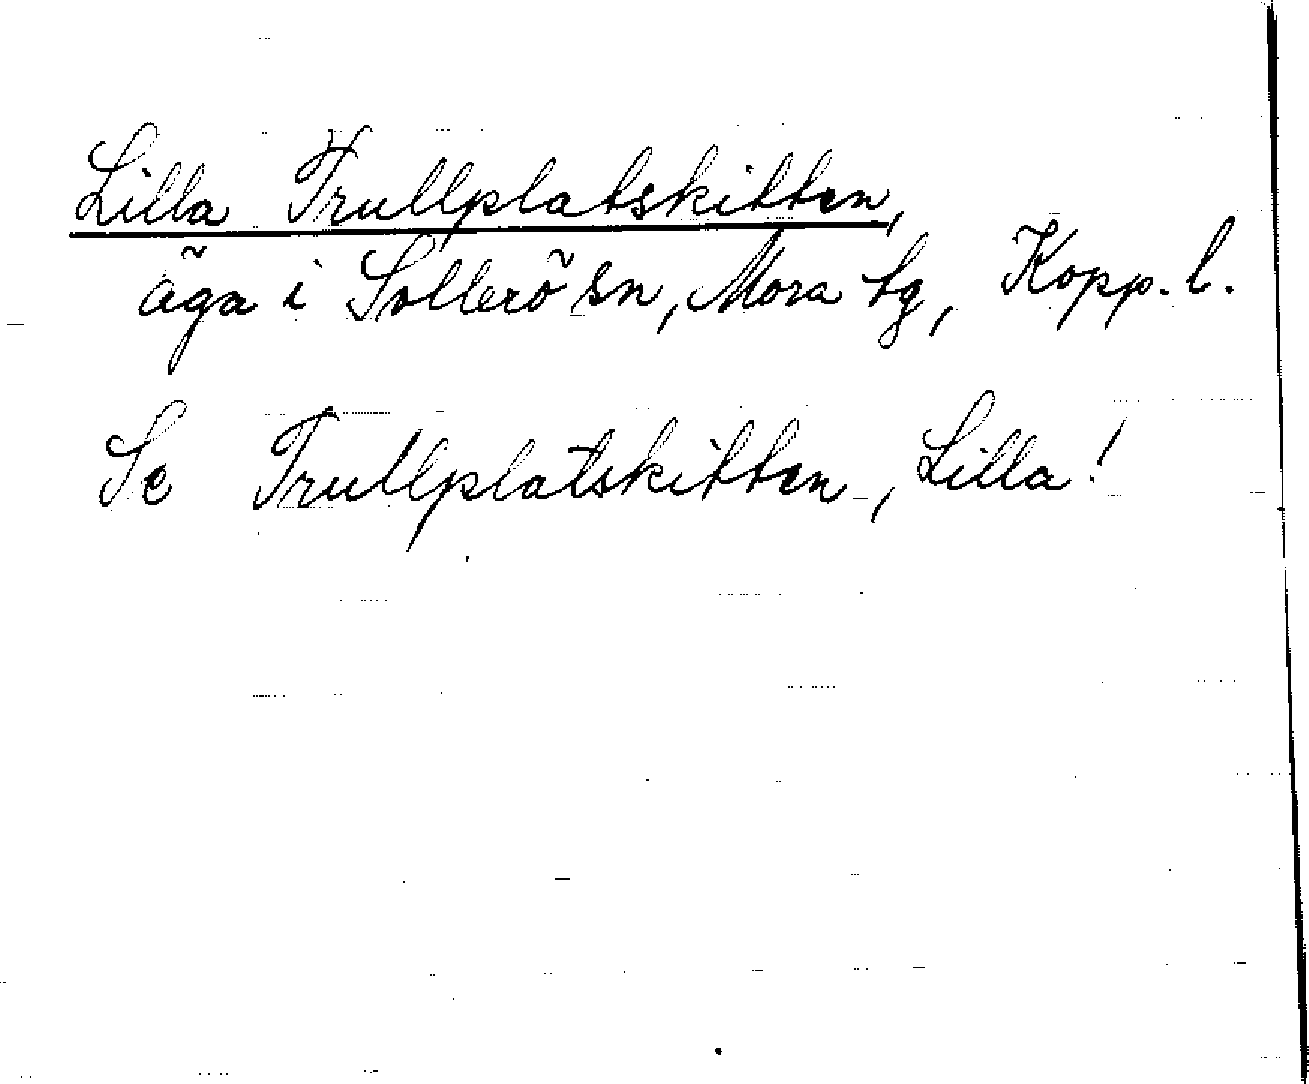 Lilla Trullplatskitten,
äga i Sollerö sn, Mora tg, Kopp. l.
Se Trullplatskitten, Lilla!